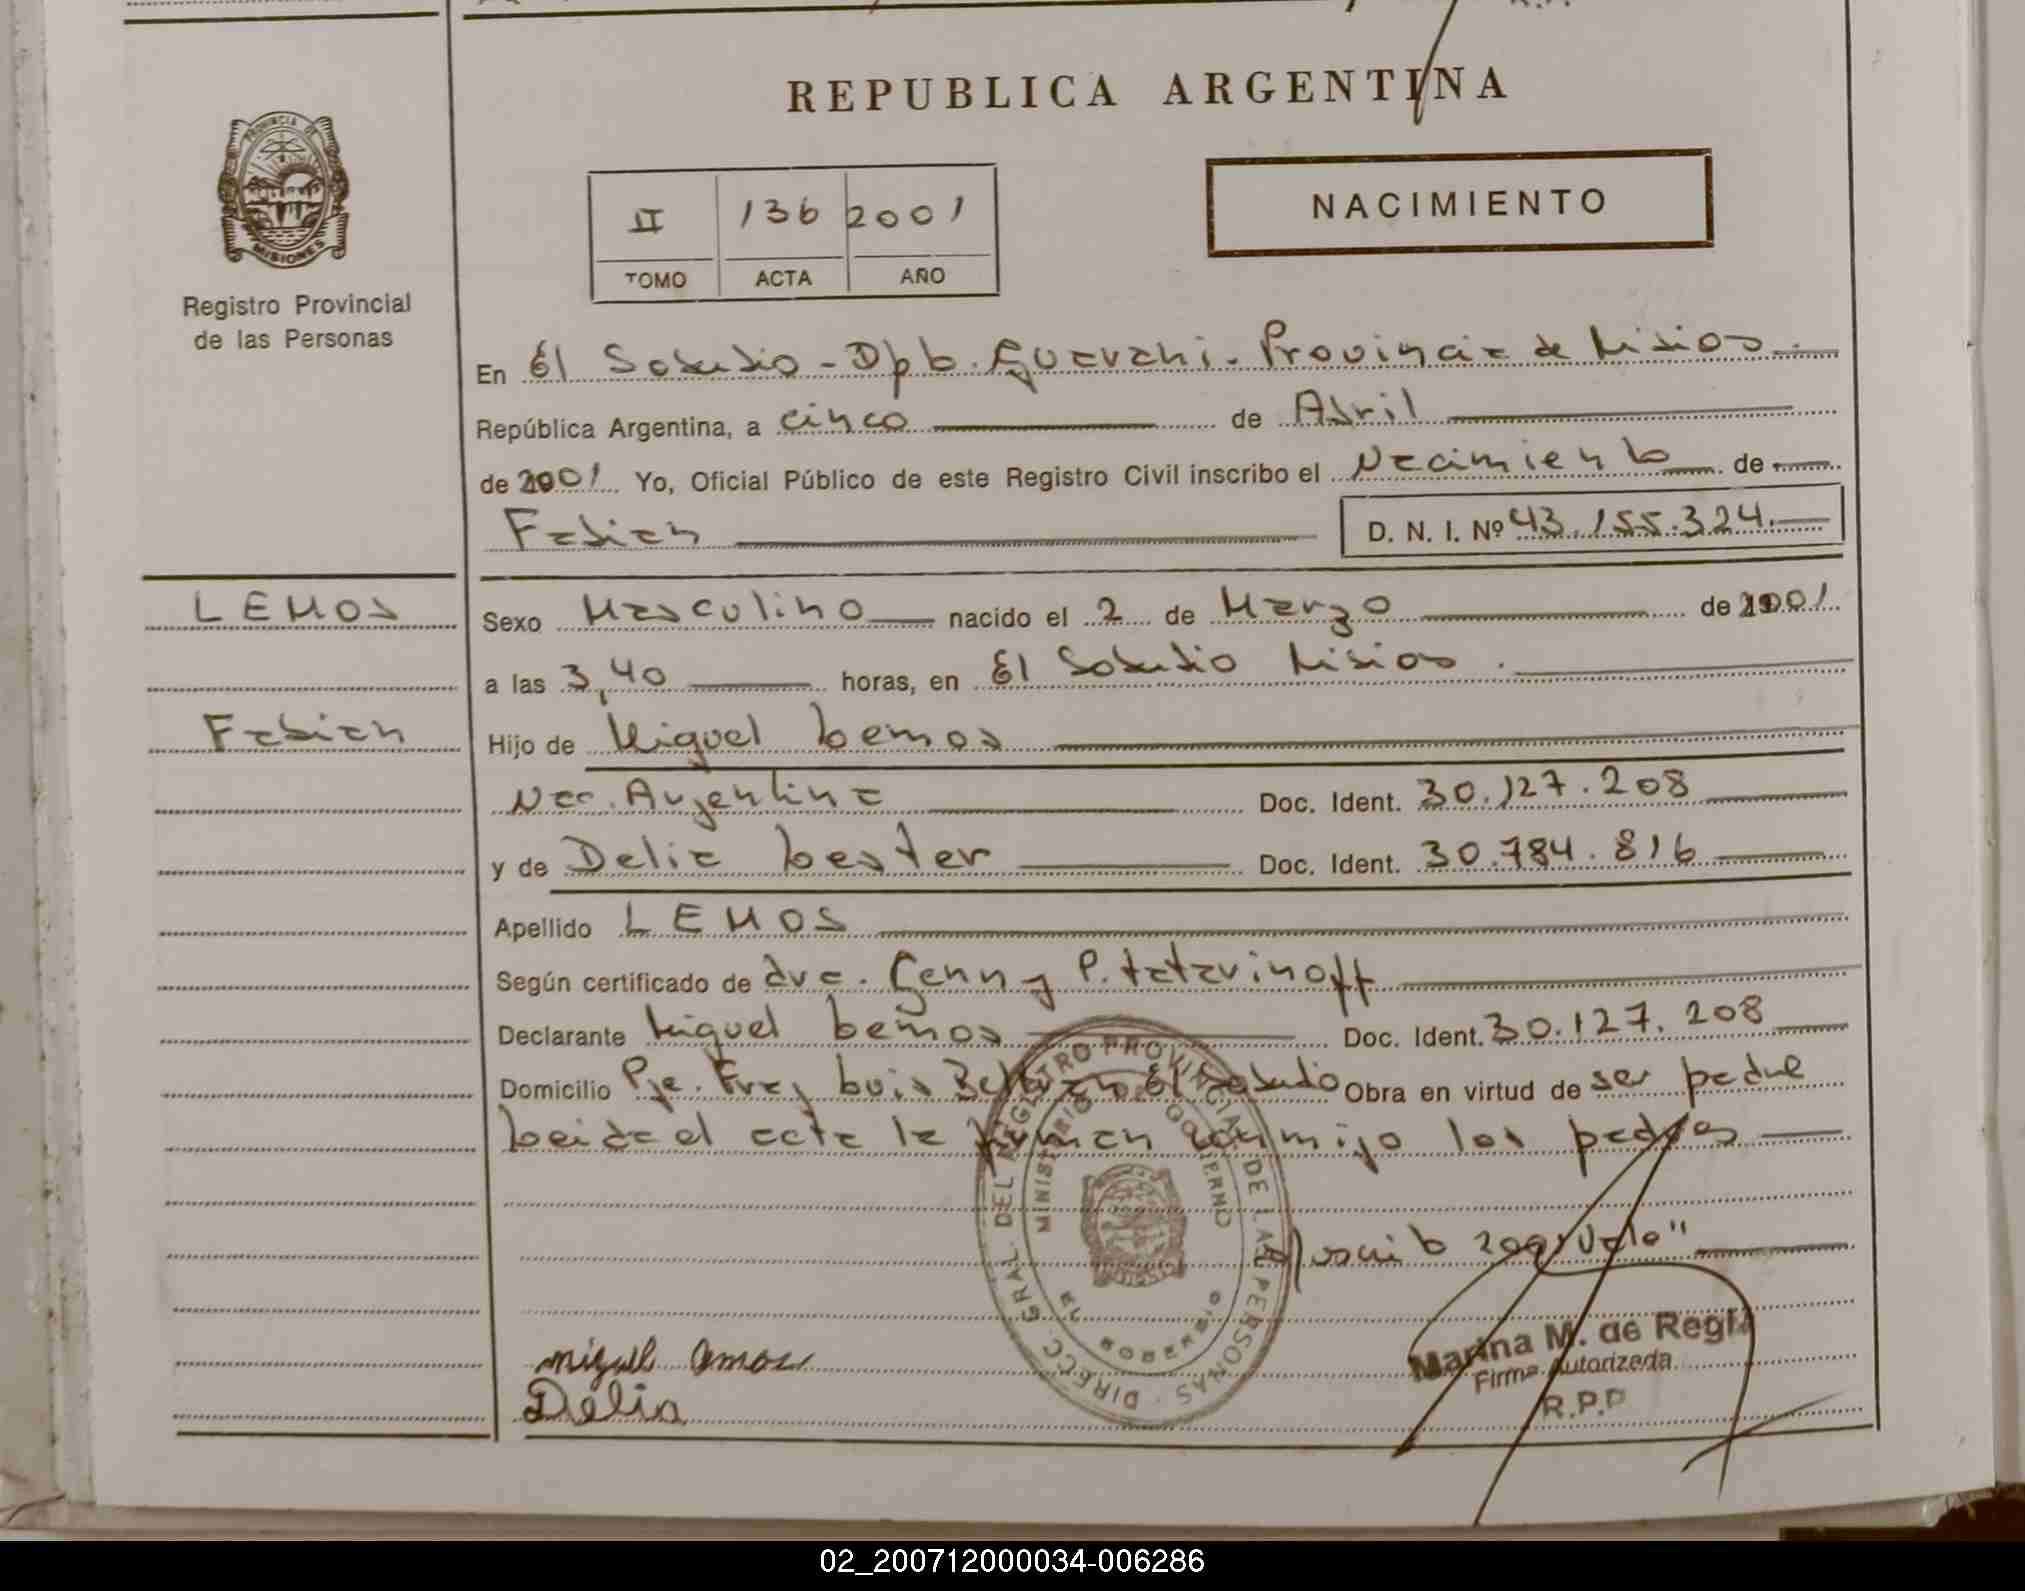 REPUBLICA ARGENTINA
PROVINCIA DE
MISIONES
Registro Provincial
de las Personas
II 136 2001
TOMO ACTA AÑO
NACIMIENTO
En El Soberbio - Dpto. Guarani - Provincia de Misiones
República Argentina, a cinco de Abril
de 2001 Yo, Oficial Público de este Registro Civil inscribo el Nacimiento de
Fabian D. N. I. Nº 43.155.324
LEMOS
Fabian
Sexo Masculino nacido el 2 de Marzo de 2001
a las 3,40 horas, en El Soberbio Misiones
Hijo de Miguel Lemos
Nac. Argentina Doc. Ident. 30.127.208
y de Delia Lester Doc. Ident. 30.784.816
Apellido LEMOS
Según certificado de dra. Genny P. Tatarinoff
Declarante Miguel Lemos Doc. Ident. 30.127.208
Domicilio Pje. Fray Luis Beltran El Soberbio Obra en virtud de ser padre
Leida el acta la firman conmigo los padres
2001 Vale"
DIRECC. GRAL. DEL REGISTRO PROVINCIAL DE LAS PERSONAS
MINISTERIO DE GOBIERNO
EL SOBERBIO
Marina M. de Regla
Firma Autorizada
R.P.P
Delia
02_200712000034-006286